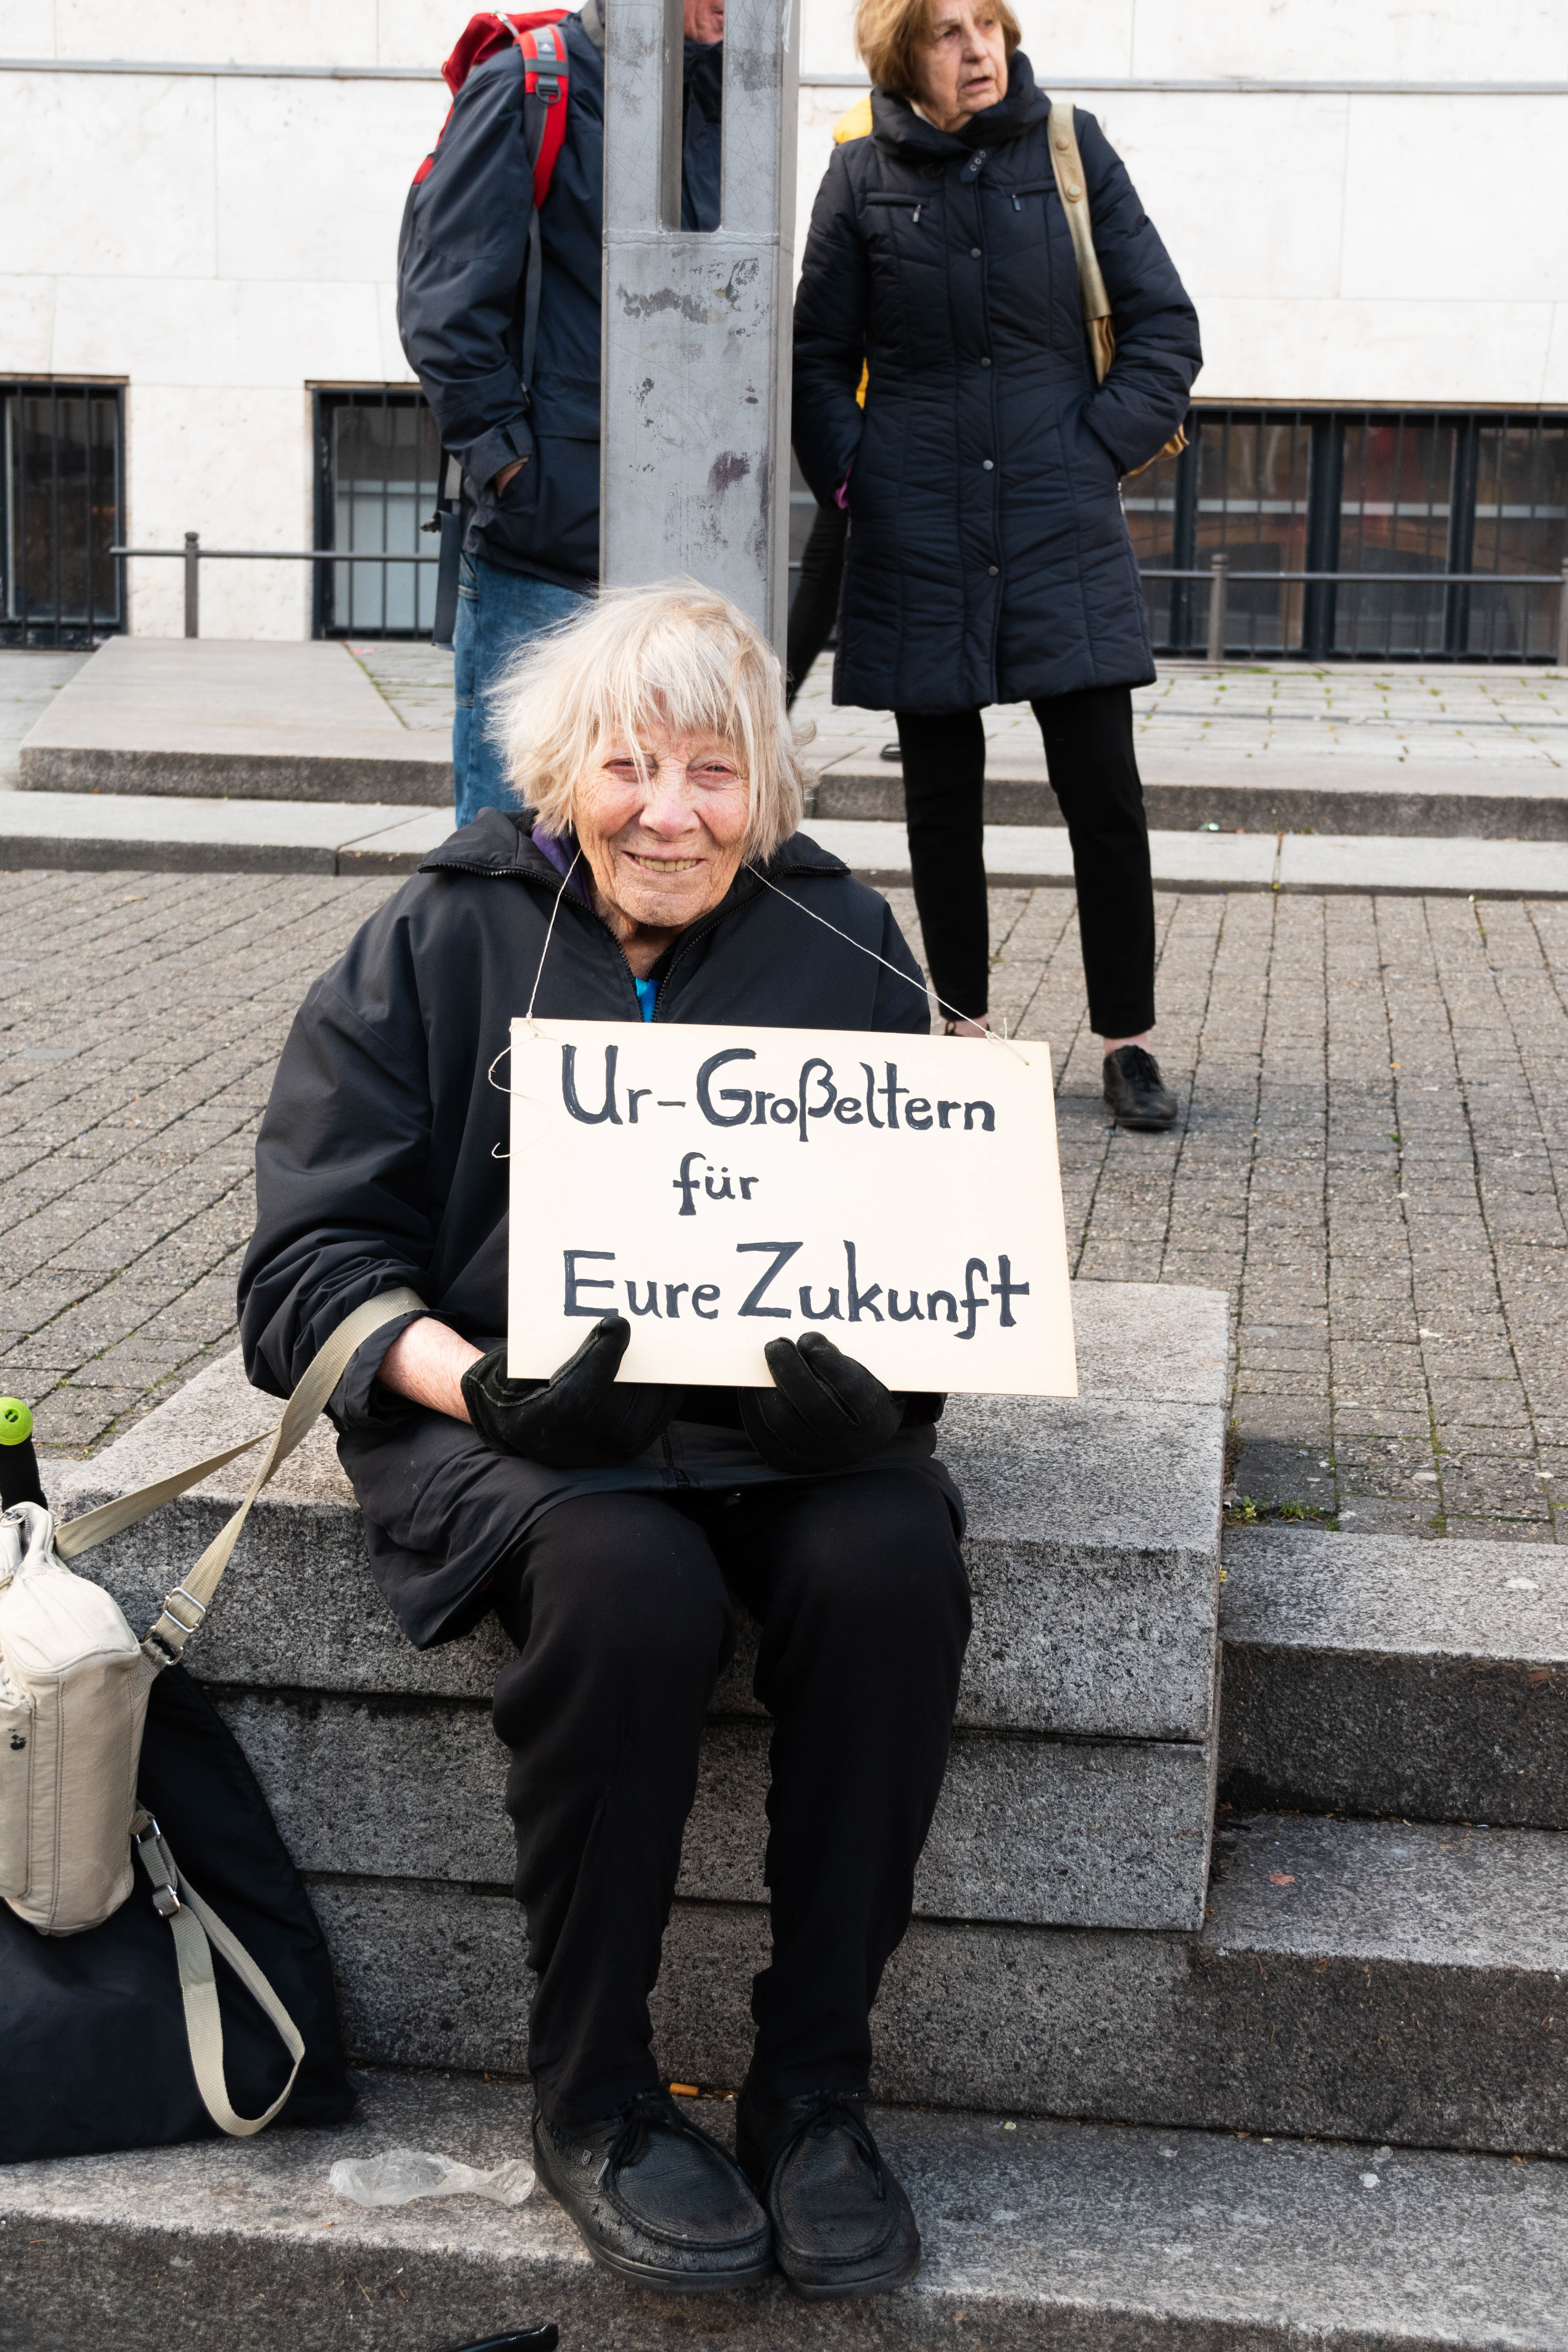 Ur-Großeltern
für
Eure Zukunft